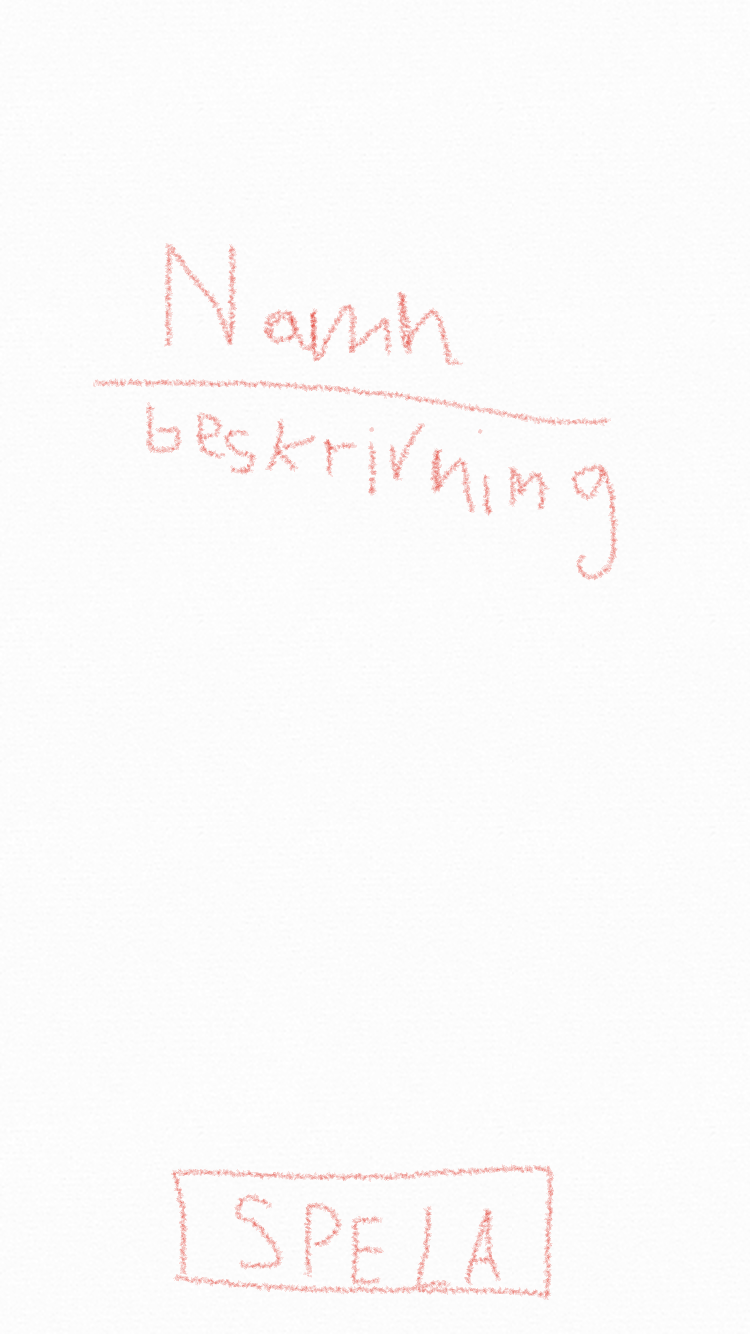 Namn
beskrivning
SPELA